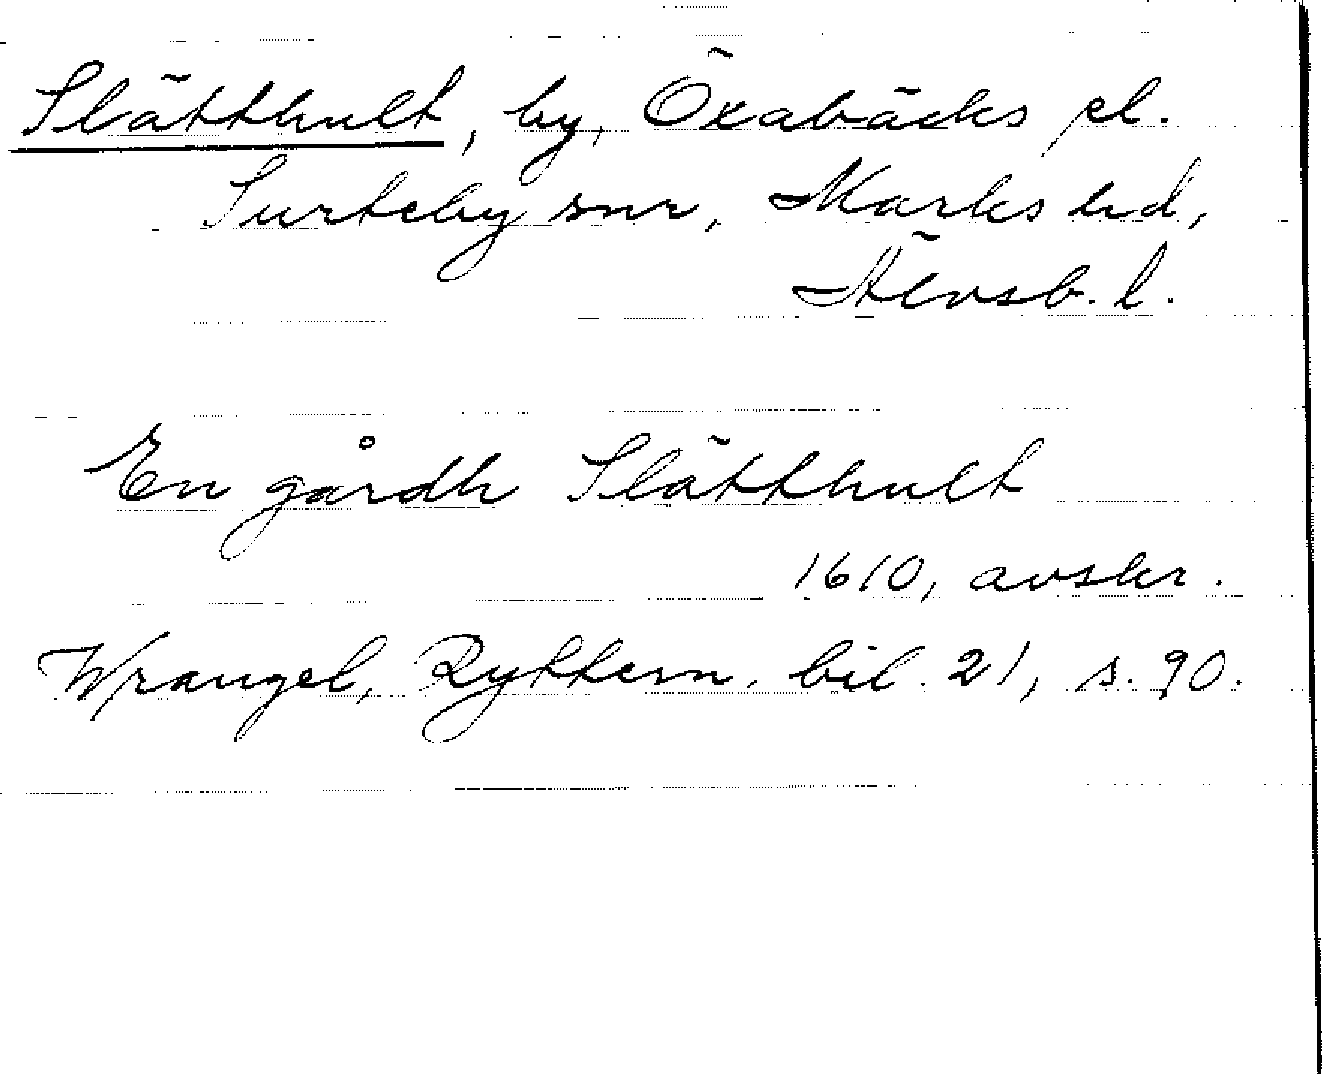 Slätthult, by, Öxabäcks el.
Surteby snr, Marks hd,
Älvsb. l.
En gårdh Slätthult
1610, avskr.
Wrangel, Ryttern. bil. 21, s. 90.